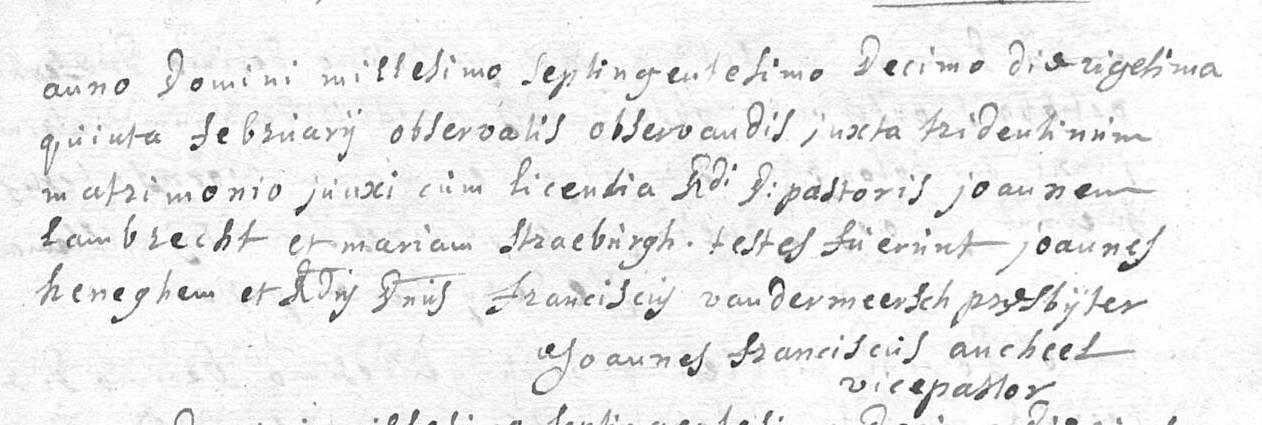 anno Domini millesimo septingentesimo Decimo die vigesima
quinta februarij observatis observandis juxta tridentinum
matrimonio junxi cum licentia Rdi D: pastoris joannem
Lambrecht et mariam straeburgh. testes fuerunt joannes
heneghem et Rdus Dnus franciscus vandermeersch presbÿter
Joannes franciscus ancheel
vicepastor